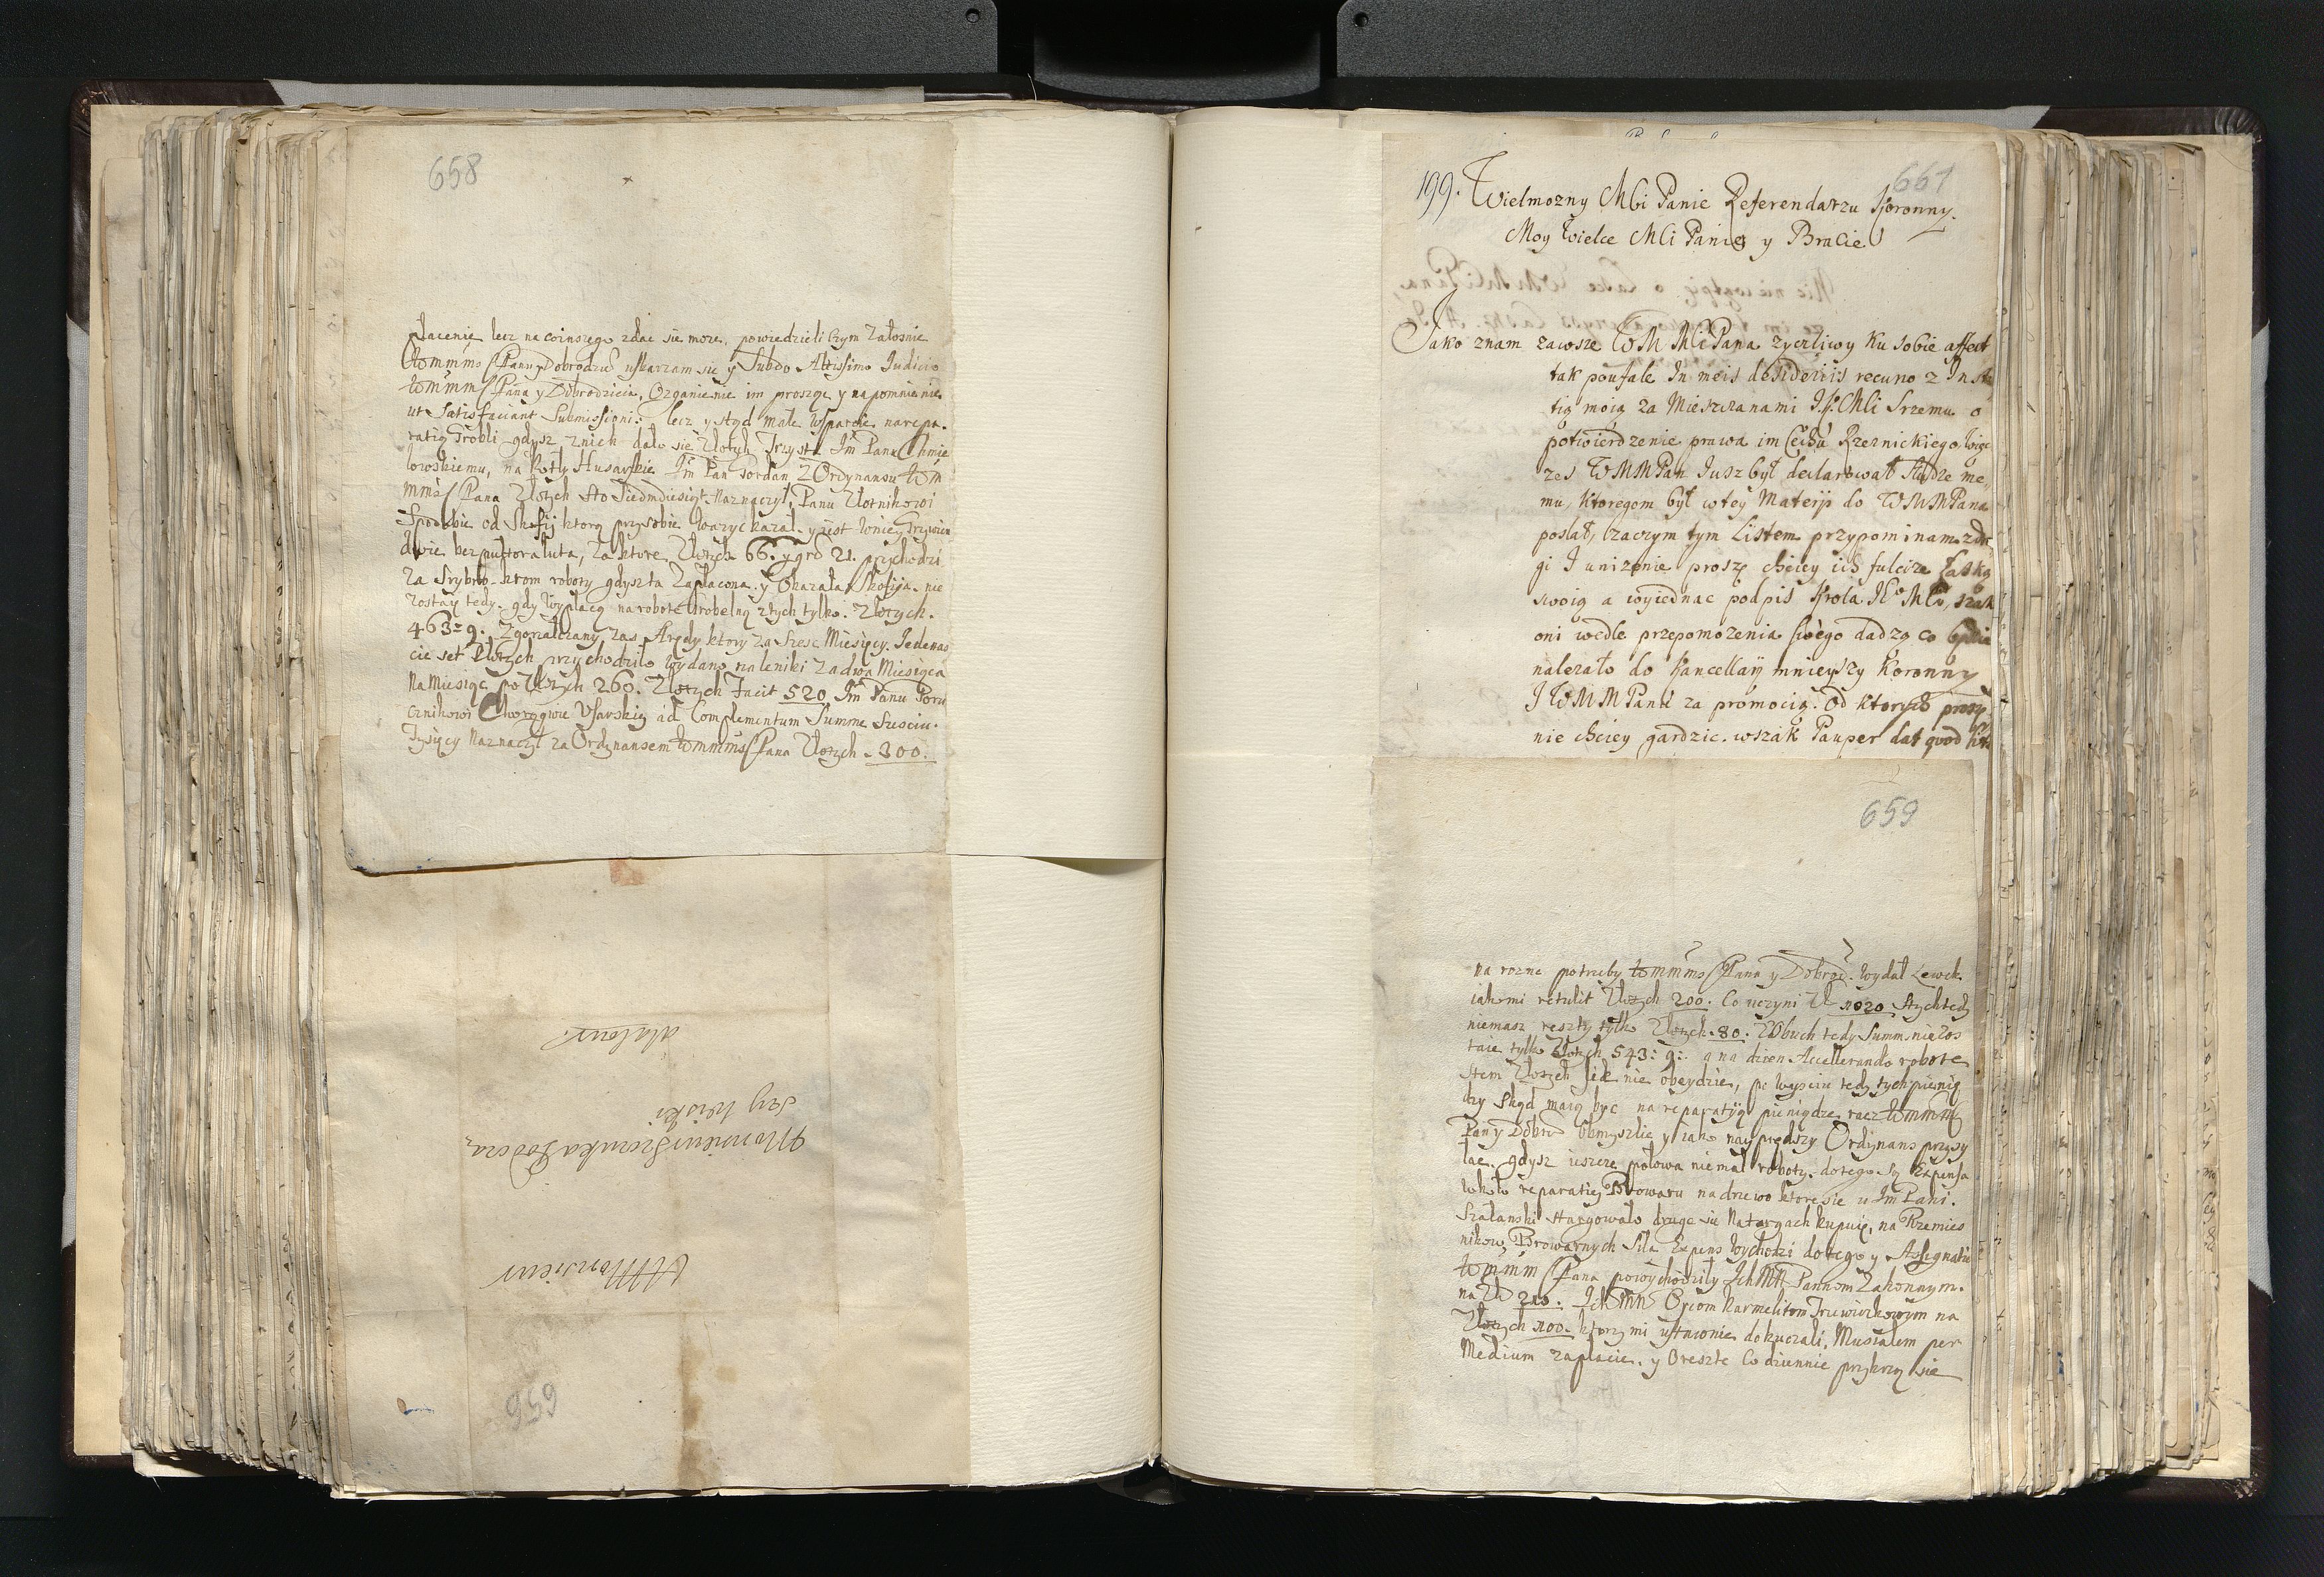 658
płacenie lecz na coinszego zdac sie może, powiedzieli czym załosnie
Panu y Dobrodzu uskarzam sie y Subdo Altissimo Iudicio
Pana y Dobrodzieia, Ozganienie im proszę y napomnienie
ut Satisfaciant Submissioni: lecz y stąd małe wsparcie na repa-
ratią Grobli gdysz znich dało się Złotych Trzysta Im Panu Chmie
lowskiemu, na Rotę Husarskie Im Pan Jordan z Ordynansu WM
Pana Złotych sto Siedmdziesiąt Naznaczył, Panu Złotnikowi
od Skofij ktorą przysobie ważyc kazał y iest wniey Grzywien
dwie bez pułtora łuta, za ktore Złotych 66. y gro 21. przychodzi
za Srybro krom roboty gdyszta Zapłacona y Okazała Skofija. nie
zostaę tedy. gdy wypłacę na robotę Grobelną ztych tylko. Złotych.
463: 9. Zgorzałczany zas Arędy ktory za Szesc Miesięcy. Jedenas
cie set Złotych przychodziło wydano na leniki za dwa Miesiąca
Na Miesiąc po Złotych 260. Złotych Facit 520 Im Panu Poru
cznikowi Chorągwie Usarskiey ad Complementum Summe Szesciu.
Tysięcy Naznaczył za Ordynansem Pana Złotych 300.
A Monsieur
Monsieur Szczuka
656
661
199. Wielmozny Mći Panie Referendarzu Koronny.
Moy Wielce Mći Panie y Bracie
Jako znam zawsze WM MćiPana zyczliwy ku sobie affect
tak poufale In meis desideriis recuro z Insta
tią moią za Mieszczanami I.K.Mći Srzemu o
potwierdzenie prawa im Cechu Rzeznickiego. Więc
zes WMMPan Iusz był declarował Słudze me
mu, ktoregom był wtey Materji do WMMPana
posłał, zaczym tym Listem przypominam zdru
gi I unizenie proszę chciey ich fulcire Łaską
swoią a wyiednac podpis Krola IEo Mći, szak
oni wedle przepomozenia swego dadzą co będzie
nalezało do Kancellarij mnieyszy Koronny
I WMMPanu za promocią. Od ktorych proszę
nie chciey gardzic. wszak Pauper dat quod
659
na rozne potrzeby Pana y Dobrodz. wydał Lewek
iako mi retulit Złotych 200. Co uczyni Zł 1020 Stych tedy
niemasz reszty tylko Złotych. 80. Zobuch tedy Summ niezos
taie tylko Złotych 543: 9: a na dzien Accellerando robote
Stem Złotych sie nie obeydzie, po wyisciu tedy tych pienię
dzy skąd maią byc na reparatyą pieniądze racz
Pan y Dobro obmyszlic y iako nayprędszy Ordynans przysy
łac. gdysz ieszcze połowa niemal roboty. do tego są Expensa
wkoło reparatiey Browaru na drzewo ktore sie u Im Pani.
Szalanski stargowało druge sie Natargach kupuię, na Rzemies
nikow, Browarnych Siła Expens wychodzi do tego y Assignatie
Pana powychodziły Ich MM Pannom Zakonnym.
na Zło 210. Ich MM Oycom Karmelitom Trzewiczkowym na
Złotych 100. ktorzy mi ustawnie dokuczali, Musiałem per
Medium zapłacic. y Oreszte Codziennie przykrzą sie